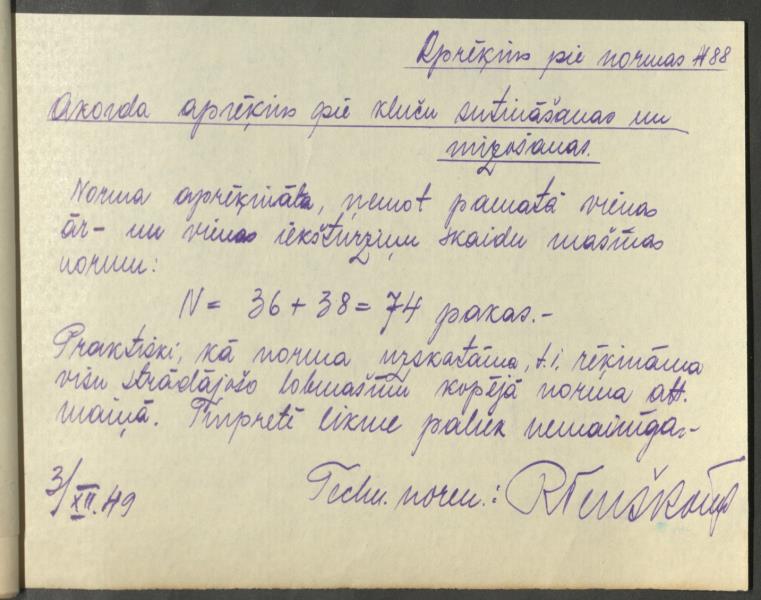 Aprēķins pie normas №88
Akorda aprēķins pie kluču sutināšanas un
mizošanas.
Norma aprēķināta, ņemot pamatā vienas
ār- un vienas iekštūrziņu skaidu mašīnas
normu:
N = 36 + 38 = 74 pakas.-
Praktiski, kā norma uzskatāma, t.i. rēķināma
visu strādājošo lobmašīnu kopējā norma att.
maiņā. Turpretī likme paliek nemainīga.-
3/XII.49
Techn. norm.: